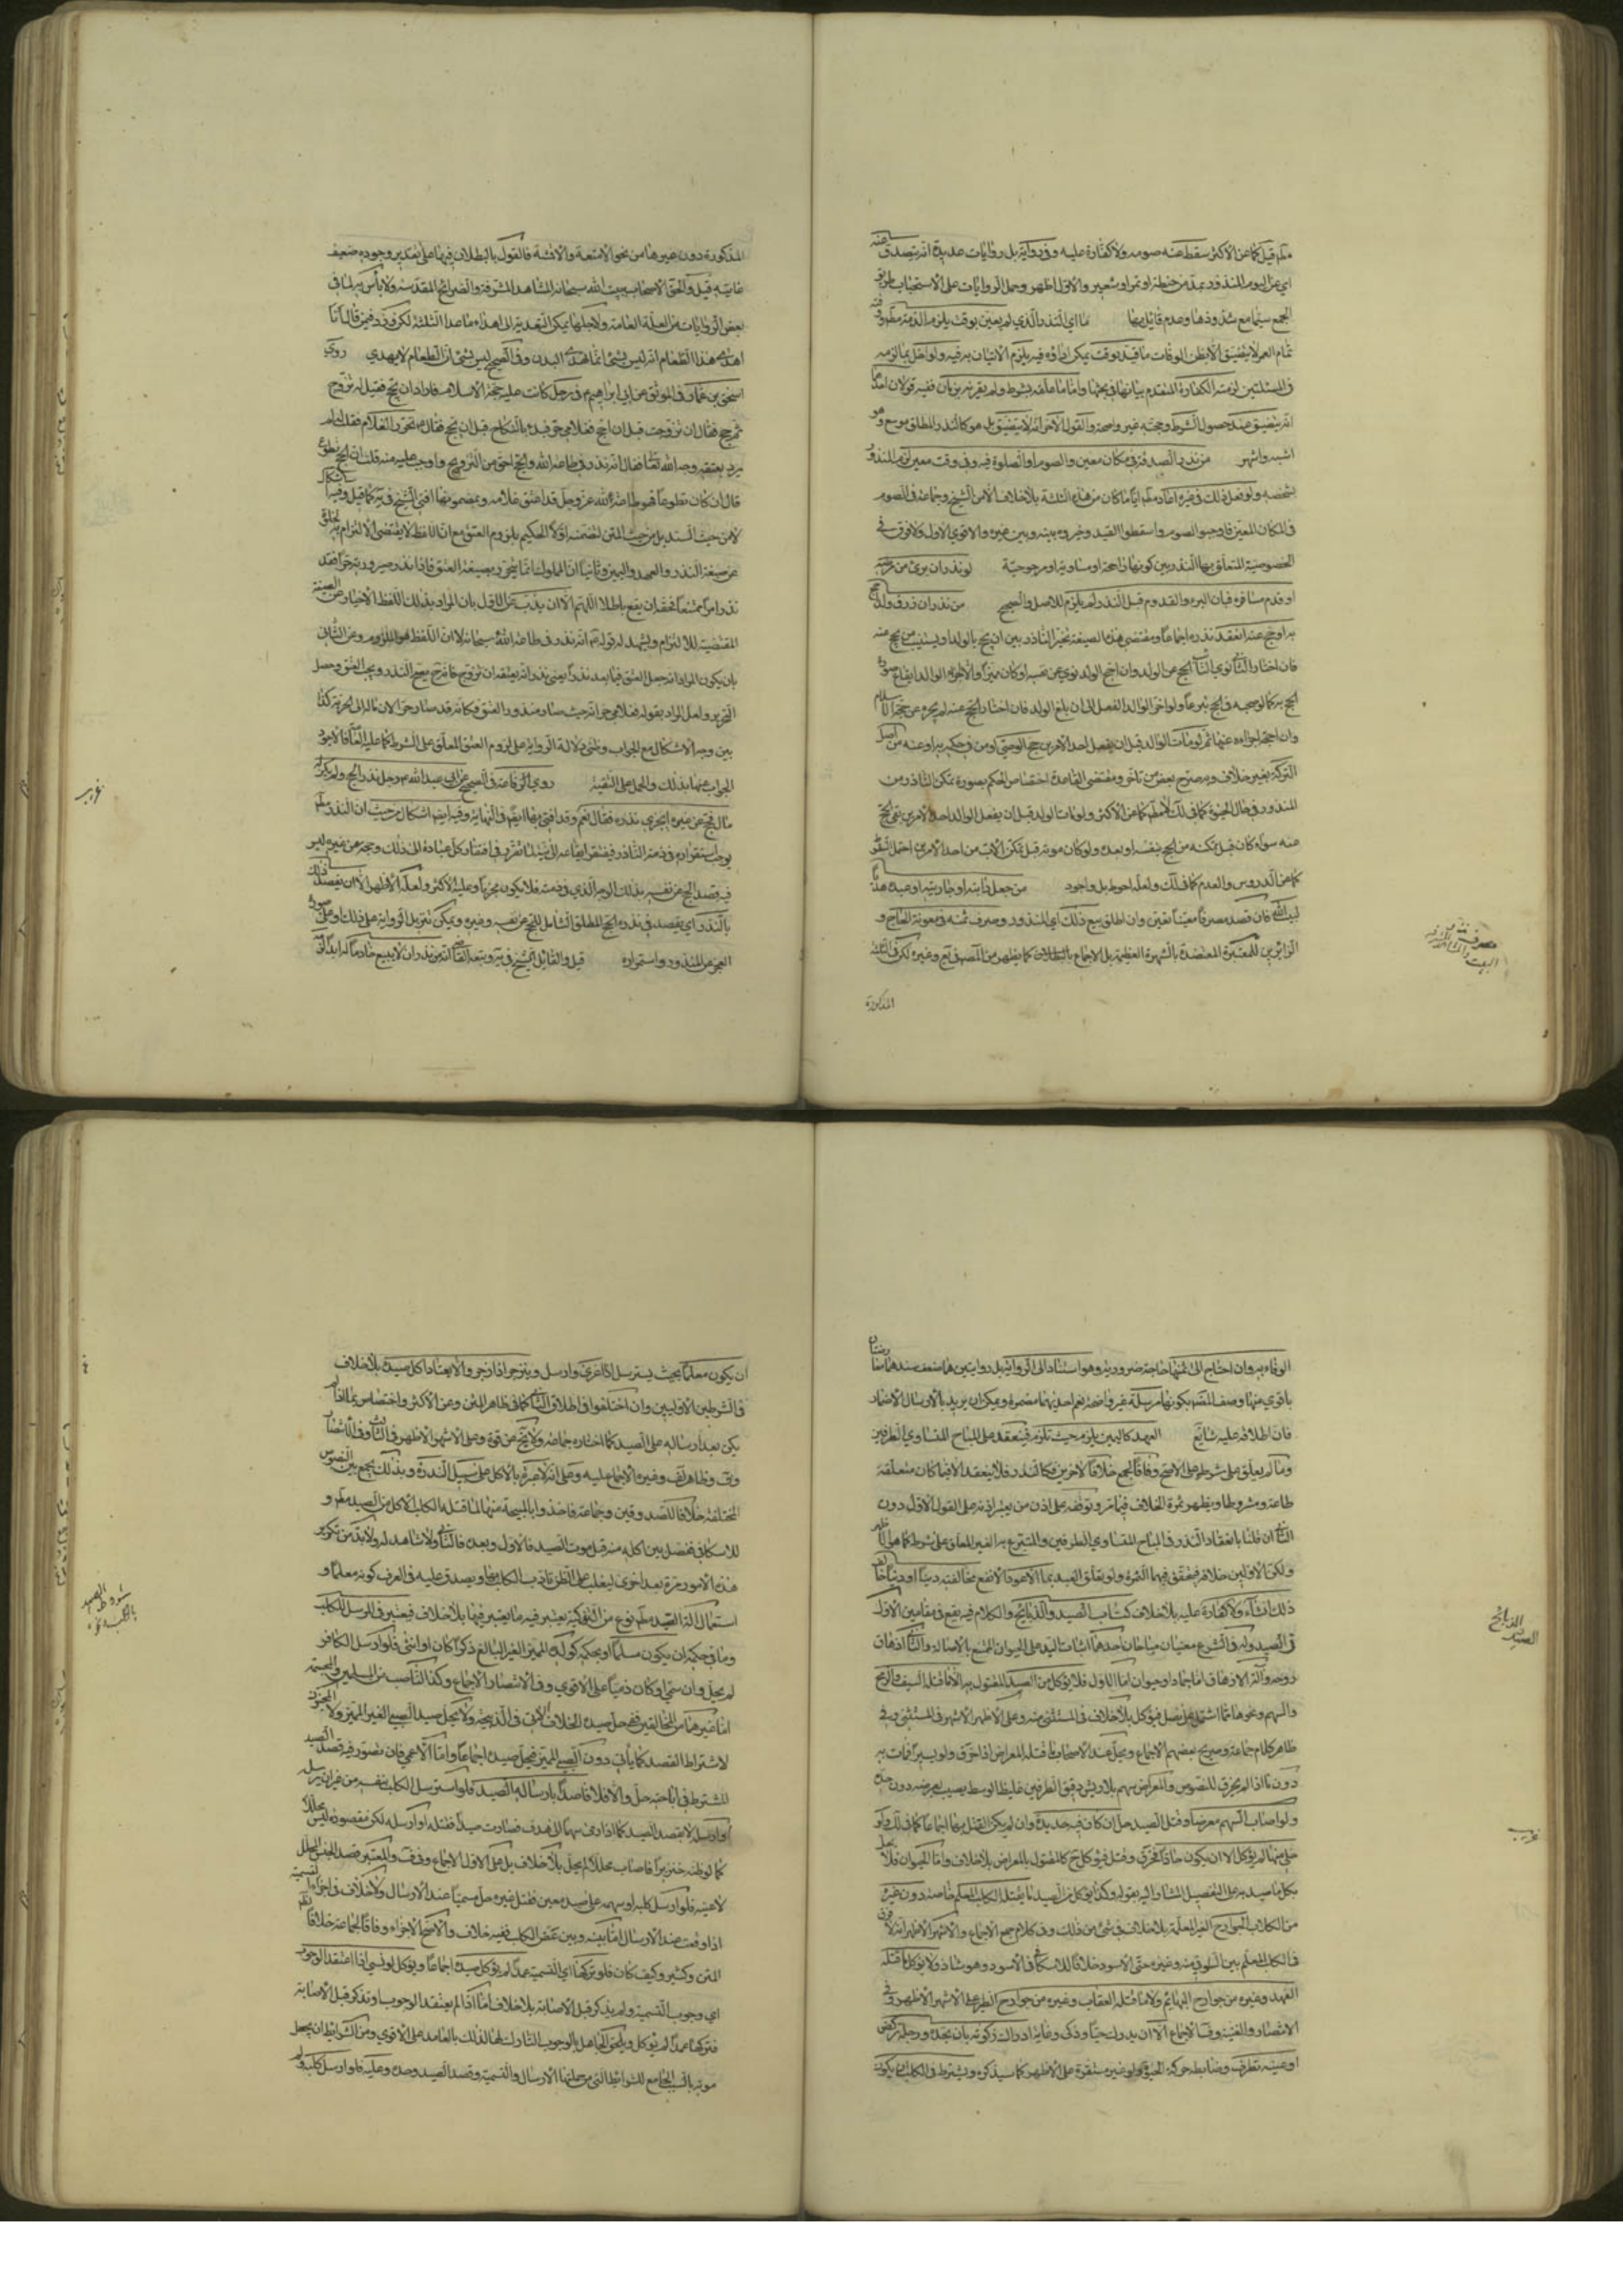 قيل كما عن الأكثر سقط عنه صومه ولا كفارة عليه وفي رواية بل روايات عديدة انه يتصدق عنه
اي عن اليوم المنذور بمد من حنطة او تمر او شعير والاول اظهر وحمل الروايات على الاستحباب طريق
الجمع سيما مع شذوذها وعدم قائل بها ما اي النذر الذي لم يعين بوقت يلزم الذمة مطلقا وقته
تمام العمر لا يتضيق الا بظن الوفات ما قيد بوقت يمكن ايقاؤه فيه يلزم الاتيان به فيه ولو اخل بما لزمه
في المسئلتين لزمته الكفارة المتقدم بيانها في بحثها واما ما علقه بشرط ولم يقرنه بزمان ففيه قولان احدهما
انه يتضيق عند حصول الشرط وحجته غير واضحة والقول الآخر انه لا يتضيق بل هو كالنذر المطلق موسع وهو
اشبه واشهر من نذر الصدقة في مكان معين والصوم او الصلوة فيه وفي وقت معين لزم المنذور
بشخصه ولو فعل ذلك في غيره اعاد مطلقا ايا ما كان من هذه الثلثة بلا خلاف الا من الشيخ وجماعة في الصوم
في المكان المعين فاوجبوا الصوم واسقطوا القيد وخيروه بينه وبين غيره والاقوى الاول ولا فرق في
الخصوصية المتعلق بها النذر بين كونها راجحة او مساوية او مرجوحية لو نذر ان برئ من مرضه
او قدم مسافره فبان البرء والقدوم قبل النذر لم يلزم للاصل والصحيح من نذر ان رزق ولدا حج
به او حج عنه انعقد نذره اجماعا ومقتضى هذه الصيغة تخير الناذر بين ان يحج بالولد او يستنيب من يحج عنه
فان اختار الثاني نوى النائب الحج عن الولد وان احج الولد نوى عن نفسه ان كان مميزا والا اجزء الوالد ايقاع صورة
الحج به كما لو صحبه في الحج تبرعا ولو اخر الوالد الفعل الى ان بلغ الولد فان اختار الحج عنه لم يجزه عن حجة الاسلام
التركة بغير خلاف وبه صرح بعض من تاخر ومقتضى القاعدة اختصاص الحكم بصورة تمكن الناذر من
المنذور في حال الحيوة كما في لك لا مطلقا كما عن الأكثر ولو مات الولد قبل ان يفعل الوالد احد الامرين بقي الحج
عنه سواء كان قبل تمكنه من الحج بنفسه او بعده ولو كان موته قبل تمكن الاب من احد الامرين احتمل السقوط
كما عن الدروس والعدم كما في لك ولعله احوط بل واجود من جعل دابته او جاريته او عبده هديا
لبيت الله فان قصد مصرفا معينا تعين وان اطلق بيع ذلك اي المنذور وصرف ثمنه في معونة الحاج و
الزائرين للمعتبرة المعتضدة بالشهرة العظيمة بل الاجماع
المذكورة
المذكورة دون غيرها من نحو الامتعة والاقشة فالقول بالبطلان فيها على تقدير وجوده ضعيف
غايته قيل والحق الاصحاب ببيت الله سبحانه المشاهد المشرفة والضرائح المقدسة ولا بأس به لما في
بعض الروايات من العلة العامة ولاجلها يمكن التعدية الى اهداء ما عدا الثلثة لكن قد ورد فيمن قال انا
اهدي هذا الطعام انه ليس بشيء انما تهدى البدن وفي الصحيح ليس بشيء ان الطعام لا يهدى روى
اسحق بن عمار في الموثق عن ابي ابراهيم في رجل كانت عليه حجة الاسلام فاراد ان يحج فقيل له تزوج
ثم حج فقال ان تزوجت قبل ان احج فغلامي حر فبدء بالنكاح قبل ان يحج فقال تحرر الغلام فقلت لم
يرد بعتقه وجه الله تعالى فقال انه نذر في طاعة الله والحج احق من التزويج واوجب عليه منه قلت ان الحج تطوع
قال ان كان تطوعا فهو طاعة لله عز وجل قد اعتق غلامه وبمضمونها افتى الشيخ في يه كما قيل وفيه اشكال
لا من حيث السند بل من حيث المتن لتضمنه اولا الحكم بلزوم العتق مع ان اللفظ لا يقتضى الالتزام به لخلوه
عن صيغة النذر والعهد واليمين وثانيا ان المملوك انما يتحرر بصيغة العتق فاذا نذر صيرورته حرا فقد
نذر امرا ممتنعا فحقه ان يقع باطلا اللهم الا ان يذب عن الاول بان المراد بذلك اللفظ الاخبار عن الصيغة
المقتضية للالتزام ويشهد له قوله انه نذر في طاعة الله سبحانه لا ان اللفظ هو الملزوم وعن الثاني
بان يكون المراد انه جعل العتق فيما بعد نذرا يعنى نذر انه يعتقه ان تزوج فانه ح يصح النذر ويجب العتق وحصل
التحرير ولعل المراد بقوله فغلامي حر انه حيث صار منذور العتق فكانه قد صار حرا لان مآله الى الحرية كذا
بين وجه الاشكال مع الجواب وظني دلالة الرواية على لزوم العتق المعلق على الشرط كما عليه العامة فالاجود
الجواب عنها بذلك والحمل على التقية روى الرفاعة في الصحيح عن ابي عبد الله رجل نذر الحج ولم يكن له
مال فحج عن غيره أيجزي نذره فقال نعم وقد افتى بها ايضا في النهاية وفيه ايضا اشكال من حيث ان النذر مطلقا
فيه قصد الحج عن نفسه بذلك اليوم الذي في ذمته فلا يكون مجزيا وعليه الأكثر ولعله الاظهر الا ان يقصد ذلك
بالنذر اي يقصد في نذره الحج المطلق الشامل للحج عن نفسه وغيره ويمكن تنزيل الرواية على ذلك او على صورة
العجز عن المنذور واستمراره قيل والقائل الشيخ في يه وتبعه القاضي انه من نذر ان لا يبيع خادما له ابدا لزمه
غريب
الوفاء به وان احتاج الى ثمنها حاجة ضرورية وهو استنادا الى الرواية بل روايتين
فان اطلاقه عليه شايع العهد كاليمين يلزم حيث تلزم فينعقد على المباح المتساوي الطرفين
وما لم يعلق على شرط على الاصح وفاقا لجمع خلافا لآخرين فكالنذر فلا ينعقد الا فيما كان متعلقه
طاعة ومشروطا ويظهر ثمرة الخلاف فيما مر وتوقفه على اذن من يعتبر اذنه على القول الاول دون
الثاني ان قلنا بانعقاد النذر في المباح المتساوي الطرفين والمتبرع به الغير المعلق على شرط كما هو الاظهر
ذلك انشاء ولا كفارة عليه بلا خلاف كتاب الصيد والذبايح والكلام فيه يقع في مقامين الاول
في الصيد وله في الشرع معنيان مباحان احدهما اثبات اليد على الحيوان الممتنع بالاصالة والثاني ازهاق
روحه وآلة الازهاق اما جماد او حيوان اما الاول فلا يؤكل من الصيد المقتول به الا ما قتله السيف والرمح
والسهم ونحوها مما اشتمل على نصل فيؤكل بلا خلاف في المستثنى منه وعلى الاظهر الاشهر في المستثنى وفي
ظاهر كلام جماعة وصريح بعضهم الاجماع ويحل عند الاصحاب ما قتله المعراض اذا خرق ولو يسيرا فمات به
دون ما اذا لم يخرق للنصوص والمعراض سهم بلا ريش دقيق الطرفين غليظ الوسط يصيب بعرضه دون حده
ولو اصاب السهم معترضا وقتل الصيد حل ان كان فيه حديدة
خلى منها لم يؤكل الا ان يكون حادا فخرق وقتل فيؤكل ح كالمقتول بالمعراض بلا خلاف واما الحيوان فلا يحل
من الكلاب والجوارح الغير المعلمة بلا خلاف في شيء من ذلك وفي كلام جمع الاجماع والاشهر الاظهر انه لا فرق
في الكلب المعلم بين السلوقي وغيره حتى الاسود خلافا للاسكافي في الاسود وهو شاذ ولا يؤكل ما قتله
الفهد وغيره من جوارح البهائم ولا ما قتله العقاب وغيره من جوارح الطير على الاشهر الاظهر وفي
الانتصار والغنية وف الاجماع الا ان يدرك حيا وذكي وغاية ادراك ذكوته بان يجده ورجله تركض
او عينه تطرف وضابطه حركة الحيوة ولو غير مستقرة على الاظهر كما سيذكره ويشترط في الكلب ان يكون
الصيد والذبائح
غريب
ان يكون معلما بحيث يسترسل اذا اغري وارسل وينزجر اذا زجر والا يعتاد اكل صيده بلا خلاف
في الشرطين الاولين وان اختلفوا في اطلاق الثاني كما في ظاهر المتن وعن الأكثر واختصاصه بما اذا لم
يكن بعد ارساله على الصيد كما اختاره جماعة ولا يخ عن قوة وعلى الاشهر الاظهر في الثالث وفي الانتصار
المختلفة خلافا للصدوقين وجماعة
للاسكافي ففصل بين اكله منه قبل موت الصيد فالاول وبعده فالثاني ولا شاهد له ولا بد من تكرير
هذه الامور مرة بعد اخرى ليغلب على الظن تأدب الكلب بها ويصدق عليه في العرف كونه معلما و
استعمال آلة الصيد مطلقا نوع من التذكية يعتبر فيه ما يعتبر فيها بلا خلاف فيعتبر في المرسل للكلب
وما في حكمه ان يكون مسلما او بحكمه كولده المميز الغير البالغ ذكرا كان او انثى فلو ارسل الكافر
لم يحل وان سمى او كان ذميا على الاقوى وفي الانتصار الاجماع وكذا الناصب من المسلمين والمجسمة
اما غيرهما من المخالفين ففي حل صيده الخلاف الآتي في الذبيحة ولا يحل صيد الصبي الغير المميز ولا المجنون
لاشتراط القصد كما يأتي دون الصبي المميز فيحل صيده اجماعا واما الاعمى فان تصور فيه قصد الصيد
المشترط في اباحته حل والا فلا قاصدا بارساله الصيد فلو استرسل الكلب بنفسه من غير ان يرسله
او ارسله لا بقصد الصيد كما اذا رمى سهما الى هدف فصادف صيدا فقتله او ارسله لكن مقصوده ليس بمحلل
كما لو ظنه خنزيرا فاصاب محللا لم يحل بلا خلاف بل على الاول الاجماع وفي ف والمعتبر قصد الجنس المحلل
لا عينه فلو ارسل كلبه او سهمه على صيد معين فقتل غيره حل مسميا عند الارسال ولا خلاف في اجزاء التسمية
اذا وقعت عند الارسال اما بينه وبين عض الكلب ففيه خلاف والاصح الاجزاء وفاقا لجماعة خلافا لظاهر
المتن وكثير وكيف كان فلو تركها اي التسمية عمدا لم يؤكل صيده اجماعا ويؤكل لو نسي اذا اعتقد الوجوب
اي وجوب التسمية ولم يذكر قبل الاصابة بلا خلاف اما اذا لم يعتقد الوجوب او تذكر قبل الاصابة
فتركها عمدا لم يؤكل ويلحق الجاهل بالوجوب التارك لها لذلك بالعامد على الاقوى ومن الشرائط ان يحصل
موته بالسبب الجامع للشرائط التي من جملتها الارسال والتسمية وقصد الصيد وحده وعليه فلو ارسل كلبه ولم
شروط الصيد